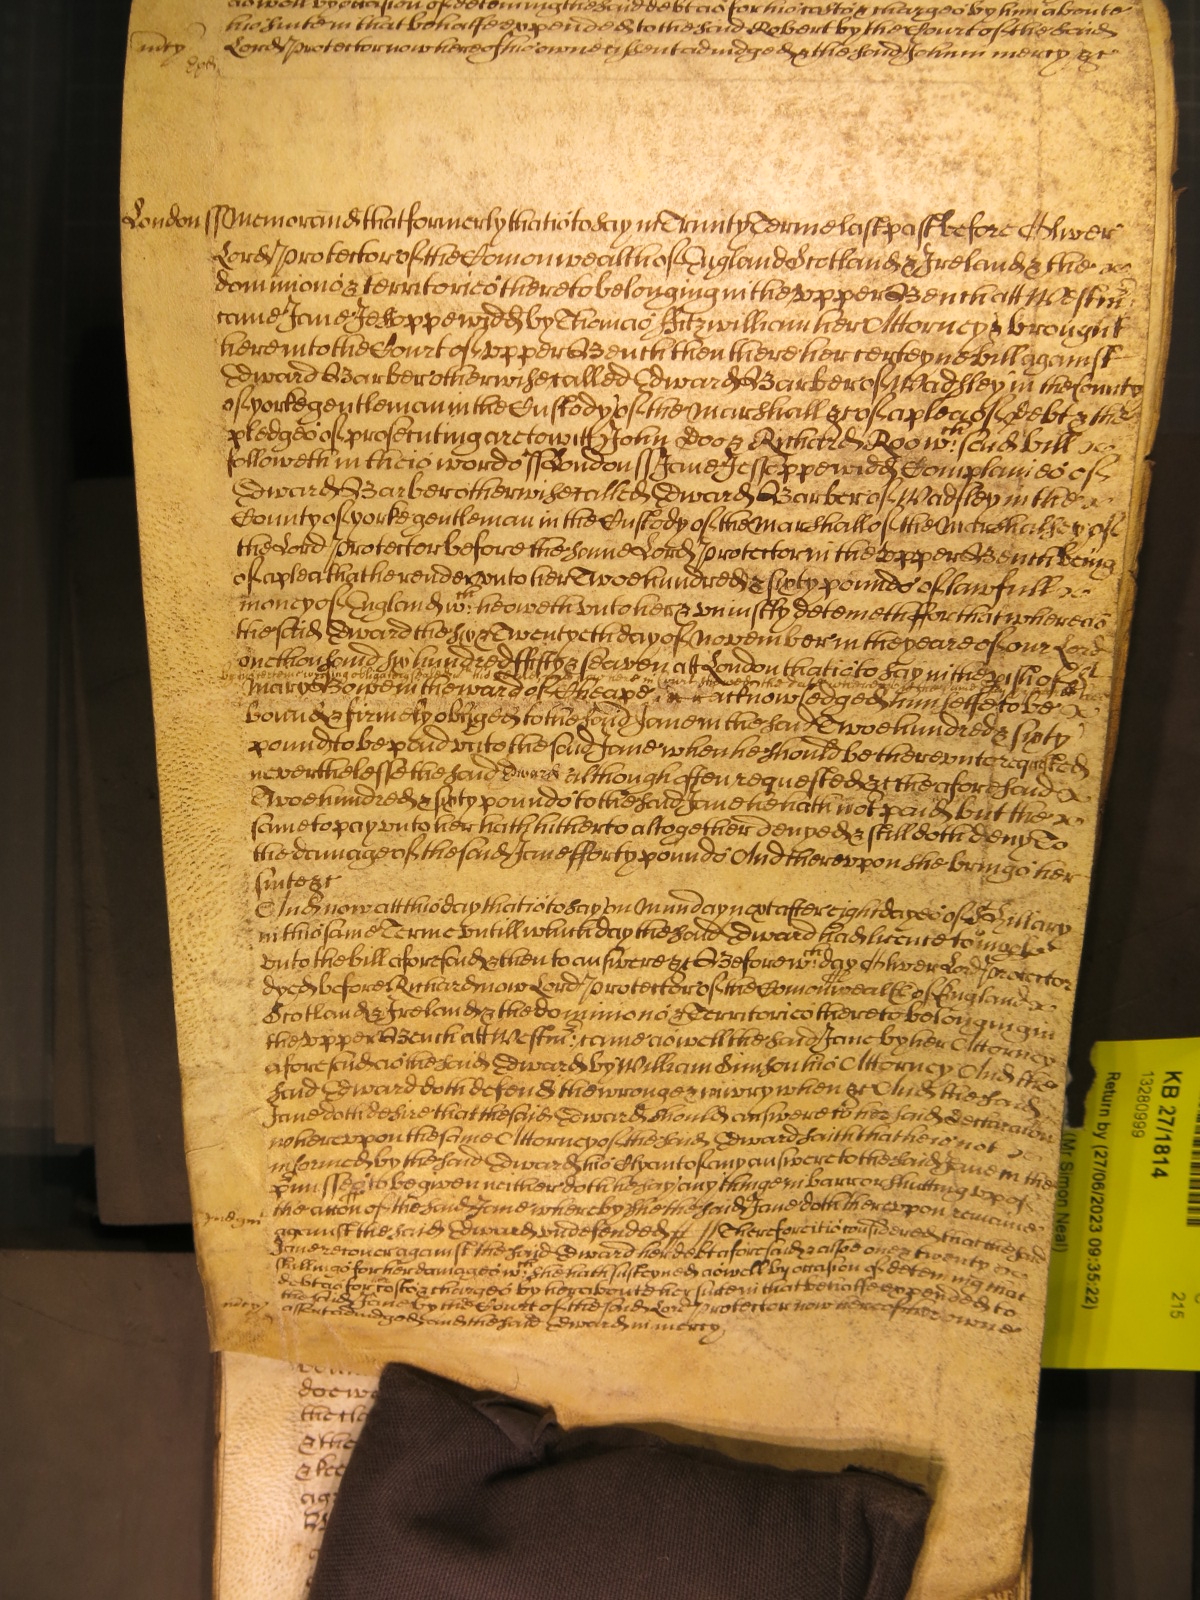 as well by occasion of deteyning the said debt as for his costs & charges by him aboute
his suite in that behalfe expended to the said Robert by the Court of the said
Lord Protector now here of his owne assent adiudged & the said John in mercy &c
London ss Memorand that formerly that is to say in Trinity Terme last past before Oliver
Lord Protector of the Comonwealth of England Scotland & Ireland & the
dominions & territories thereto belonging in the vpper Bench att Westm̃
came Jane Jessoppe widd by Thomas Fitzwilliam her Attorney & brought
here into the Court of vpper Bench then there her certeyne bill against
Edward Barber otherwise called Edward Barber of Wadsley in the County
of yorke gentleman in the Custody of the Marshall &c of a plea of debt & the
pledges of prosecuting are to witt John Doo & Richard Roo wch: said bill
followeth in theis words ss London ss Jane Jessoppe widd Complaines of
Edward Barber otherwise called Edward Barber of Wadsley in the
County of yorke gentleman in the Custody of the Marshall of the Marshalsey of
the Lord Protector before the same Lord Protector in the vpper Bench being
of a plea that he render vnto her Twoe hundred & sixty pounds of lawfull
money of England wch: he oweth vnto her & vniustly deteineth ffor that whereas
the said Edward the six & Twentyeth day of November in the yeare of our Lord
one thousand six hundred ffifty & seaven att London that is to say in the parish of St
by his certeine writing obligatory
Mary Bowe in the ward of Cheape acknowledged himselfe to be
bound & firmely obliged to the said Jane in the said Twoe hundred & sixty
pounds to be paid vnto the said Jane when he should be therevnto requested
neverthelesse the said Edward although often requested &c the aforesaid
Twoe hundred & sixty pounds to the said Jane he hath not paid but the
same to pay vnto her hath hitherto altogether denyed & still doth deny To
the damage of the said Jane fforty pounds And therevpon she brings her
suite &c
And now att this day that is to say on Munday next after eight dayes of St Hillary
in this same Terme vntill which day the said Edward had licence to imparle
vnto the bill aforesaid & then to answere &c Before wch: day Oliver Lord Protector
dyed before Richard now Lord Protector of the Comonwealth of England
Scotland & Ireland & the dominions & Territories thereto belonging in
the vpper Bench att Westm̃: came aswell the said Jane by her Attorney
aforesaid as the said Edward by William Simson his Attorney And the
said Edward doth defend the wronge & iniury when &c And the said
Jane doth desire that the said Edward should answere to her said declaracion
wherevpon the same Attorney of the said Edward saith that he is not
informed by the said Edward his Clyant of any answere to the said Jane in the
p̃miss̃es to be given neither doth he say any thinge in barr or shutting vp of
the action of the said Jane whereby she the said Jane doth therevpon remaine
against the said Edward vndefended &c // Therefore it is considered that the said
Judgmt
Jane recover against the said Edward her debt aforesaid & alsoe one & twenty
shillings for her damages wch: she hath susteyned aswell by occasion of deteyning that
debt as for costs & charges by her aboute her suite in that behalfe expended to
the said Jane by the Court of the said Lord Protector now here of her owne
mercy
assent adiudged And the said Edward in mercy
KB 27/1814
13280999
215
(Mr Simon Neal)
Return by (27/06/2023 09:35:22)